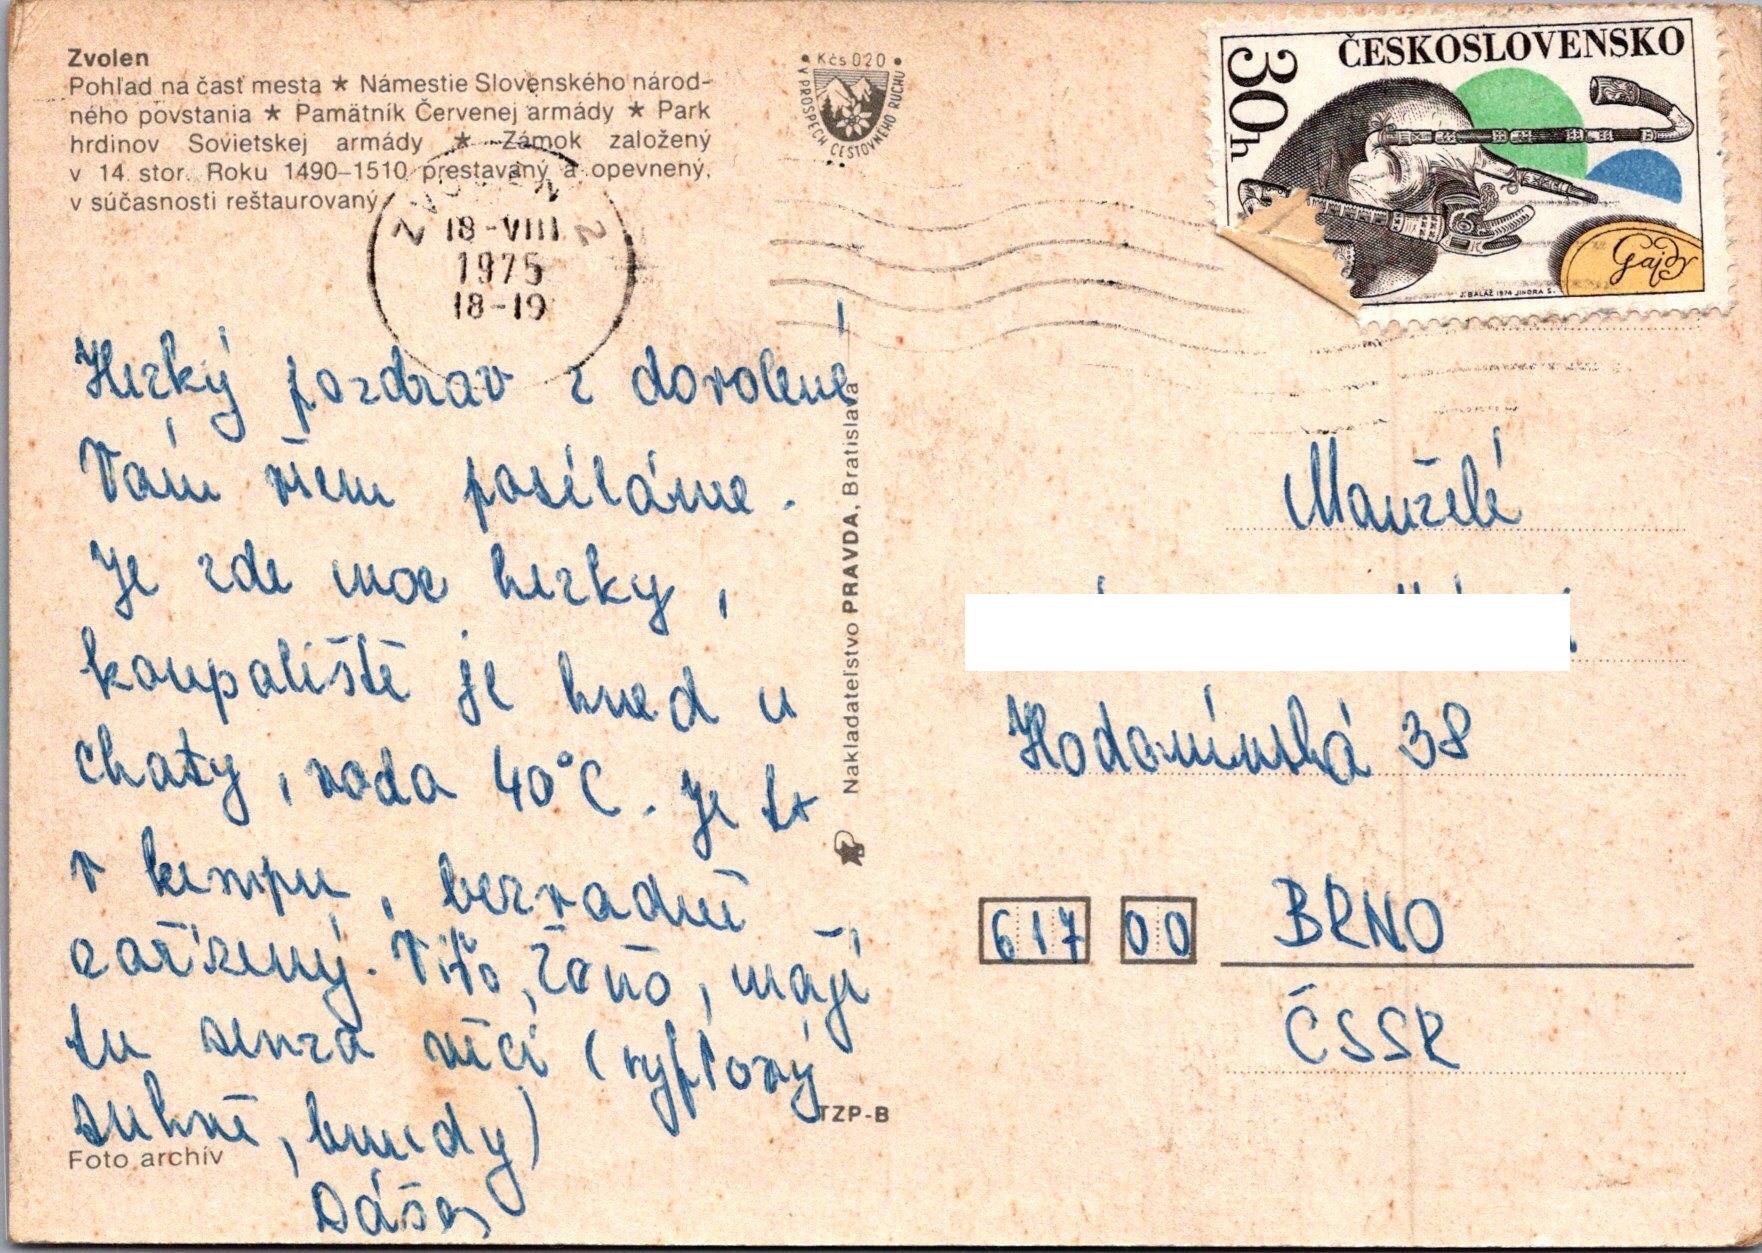 Zvolen
Pohľad na časť mesta ★ Námestie Slovenského národ-
ného povstania ★ Pamätník Červenej armády ★ Park
hrdinov Sovietskej armády ★ Zámok založený
v 14. stor. Roku 1490–1510 prestavaný a opevnený,
v súčasnosti reštaurovaný
Kčs 020
V PROSPECH CESTOVNÉHO RUCHU
30h
ČESKOSLOVENSKO
Gajdy
J. BALÁŽ 1974 JINDRA S.
ZVOLEN 2
18-VIII
1975
18-19
Hezký pozdrav z dovolené
Vám všem posíláme.
Je zde moc hezky,
koupaliště je hned u
chaty, voda 40°C. Je to
v kempu, bezvadně
zařízený. Víťo, Žaňo, mají
tu senza věci (ryflový
sukně, bundy)
Dáša
Foto archív
Nakladateľstvo PRAVDA, Bratislava
TZP-B
Manželé
Hodonínská 38
617 00 BRNO
ČSSR